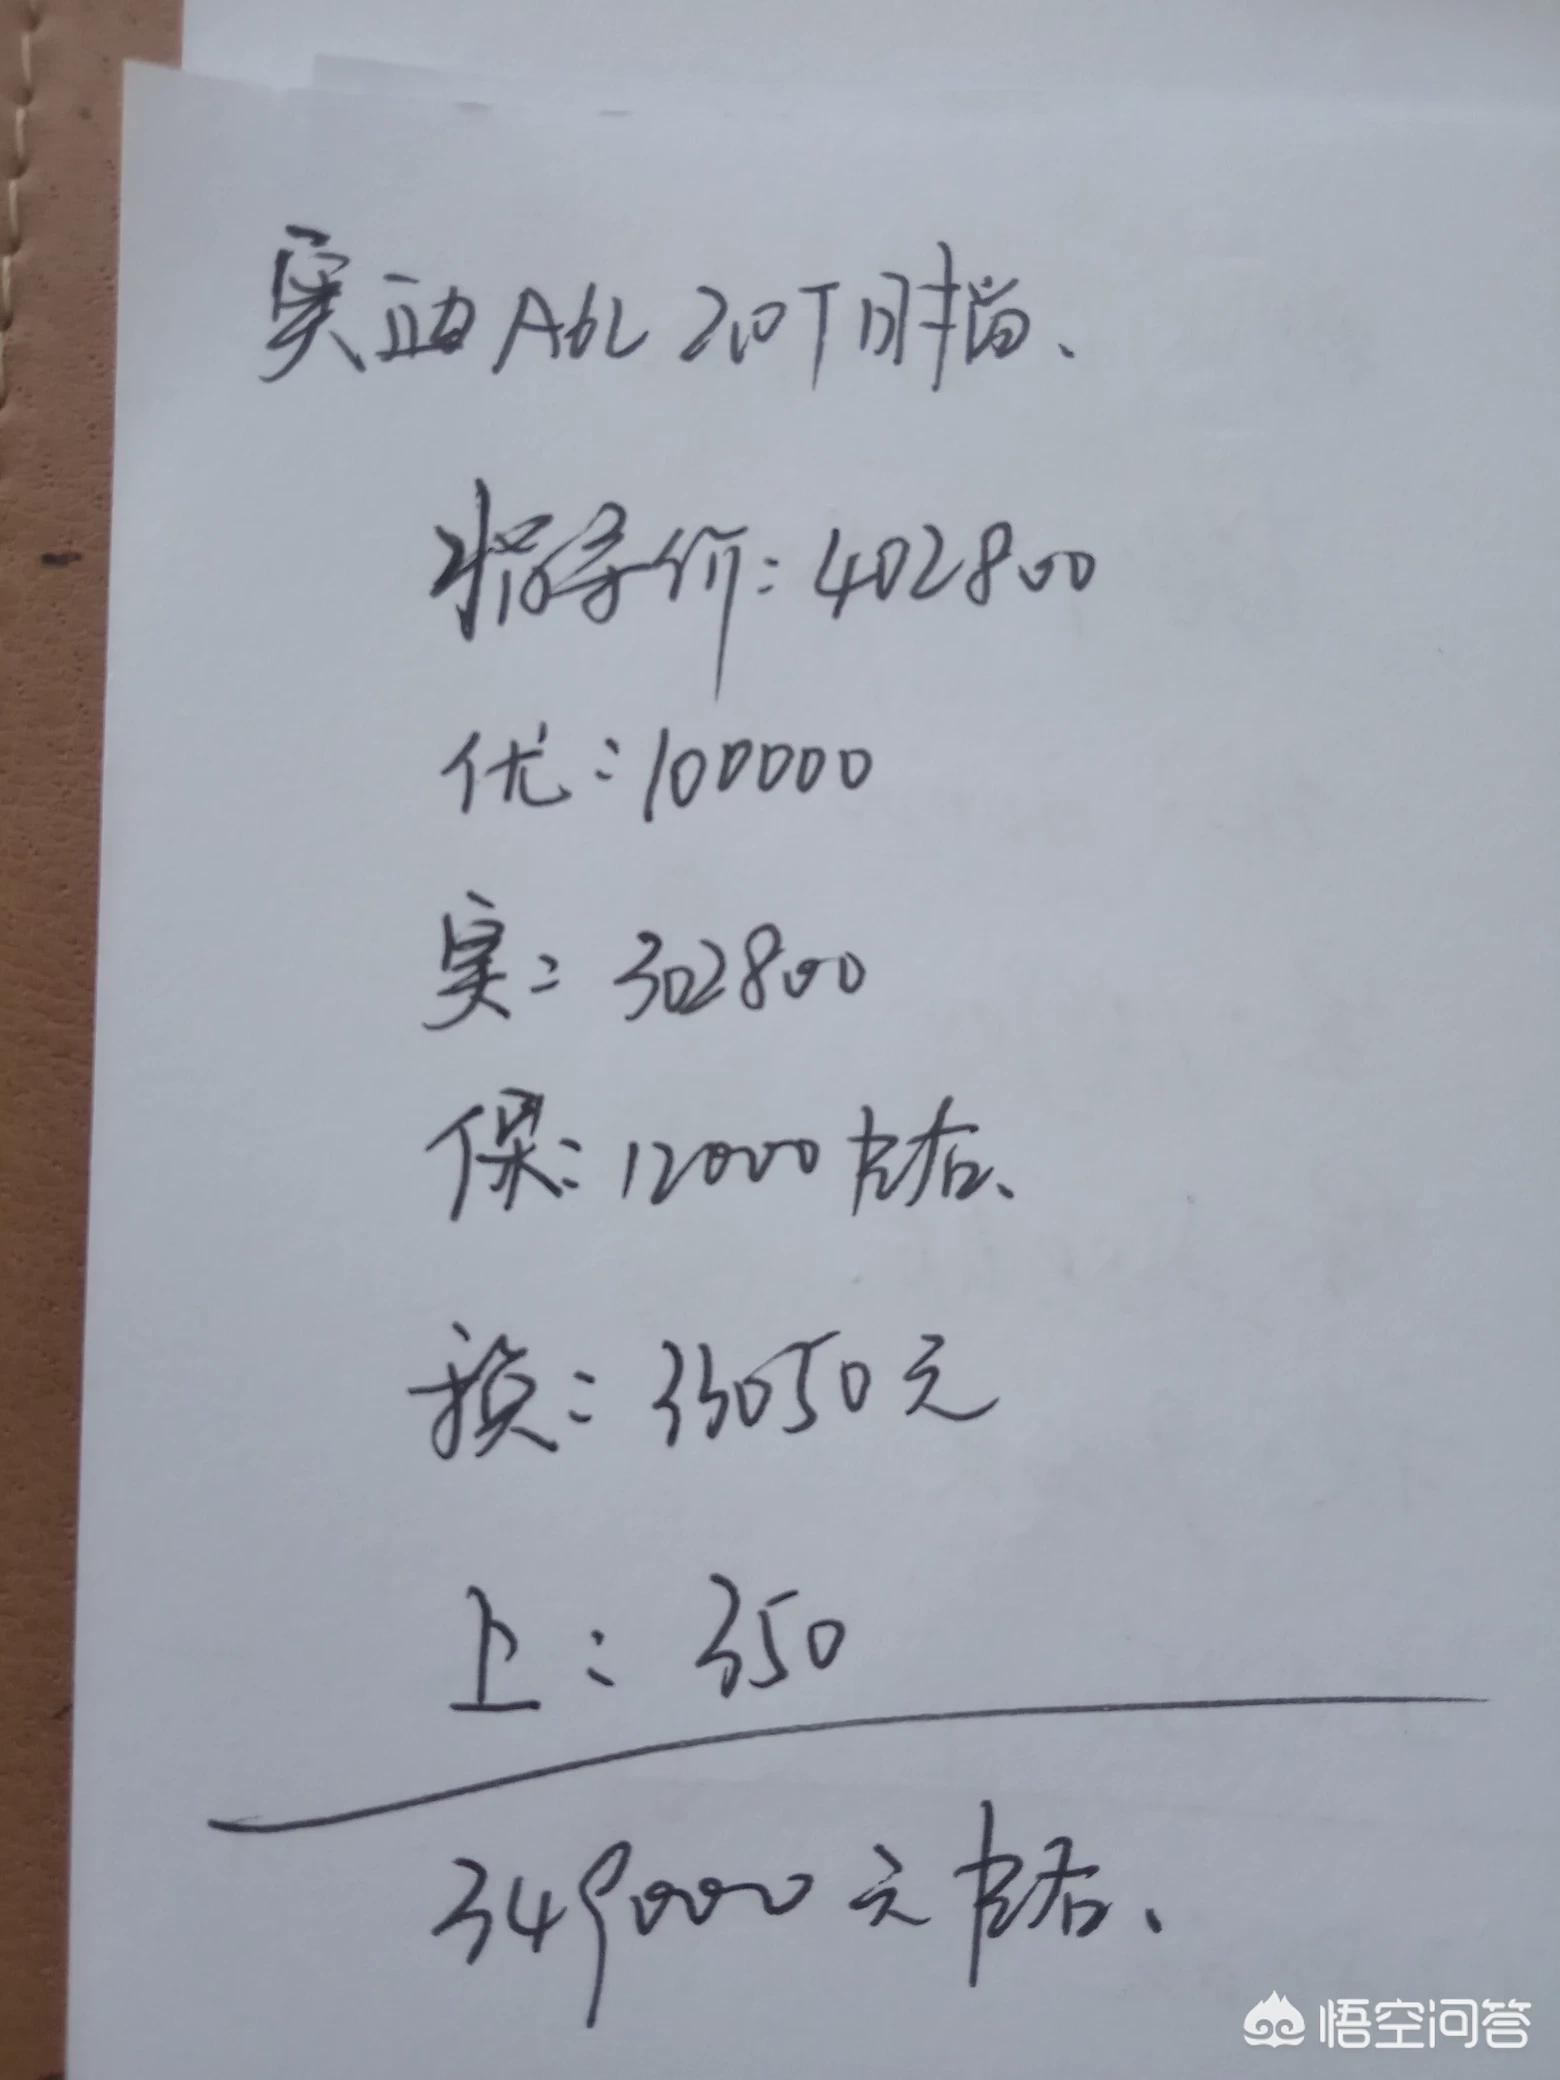 奥迪A6L 2.0T 时尚、
指导价：402800
优：100000
实：302800
保：12000左右、
税：33050元
上：350
349000元左右、
悟空问答